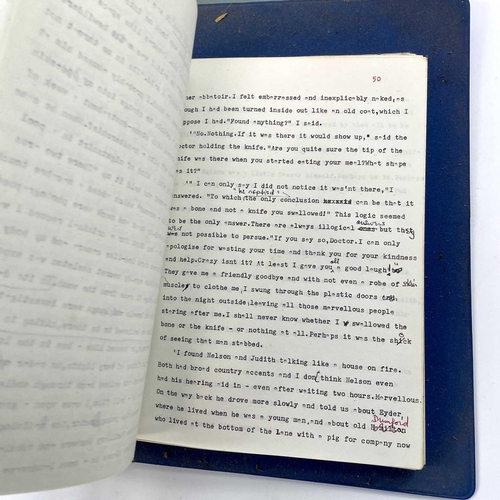 50
her abbatoir.I felt embarrassed and inexplicably naked,as
ough I had been turned inside out like an old coat,which I
ppose I had."Found anything?" I said.
'"No.Nothing.If it was there it would show up," said the
octor holding the knife."Are you quite sure the tip of the
nife was there when you started eating your meal?What shape
as it?"
'" I can only say I did not notice it was'nt there,"I
he replied
nswered. "To which the only conclusion can be that it
as a bone and not a knife you swallowed!" This logic seemed
answers
to be the only answer.There are always illogical but they
were
not possible to persue."If you say so,Doctor.I can only
apologise for wasting your time and thank you for your kindness
all
and help.Crazy isnt it? At least I gave you a good laugh!"
They gave me a friendly goodbye and with not even a robe of skin
muscle to clothe me,I swung through the plastic doors
into the night outside,leaving all those marvellous people
staring after me.I shall never know whether I swallowed the
bone or the knife - or nothing at all.Perhaps it was the shock
of seeing that man stabbed.
'I found Nelson and Judith talking like a house on fire.
Both had broad country accents and I don't think Nelson even
had his hearing aid in - even after waiting two hours.Marvellous.
On the way back he drove more slowly and told us about Ryder,
Dumford
where he lived when he was a young man,and about old
who lived at the bottom of the Lane with a pig for company now